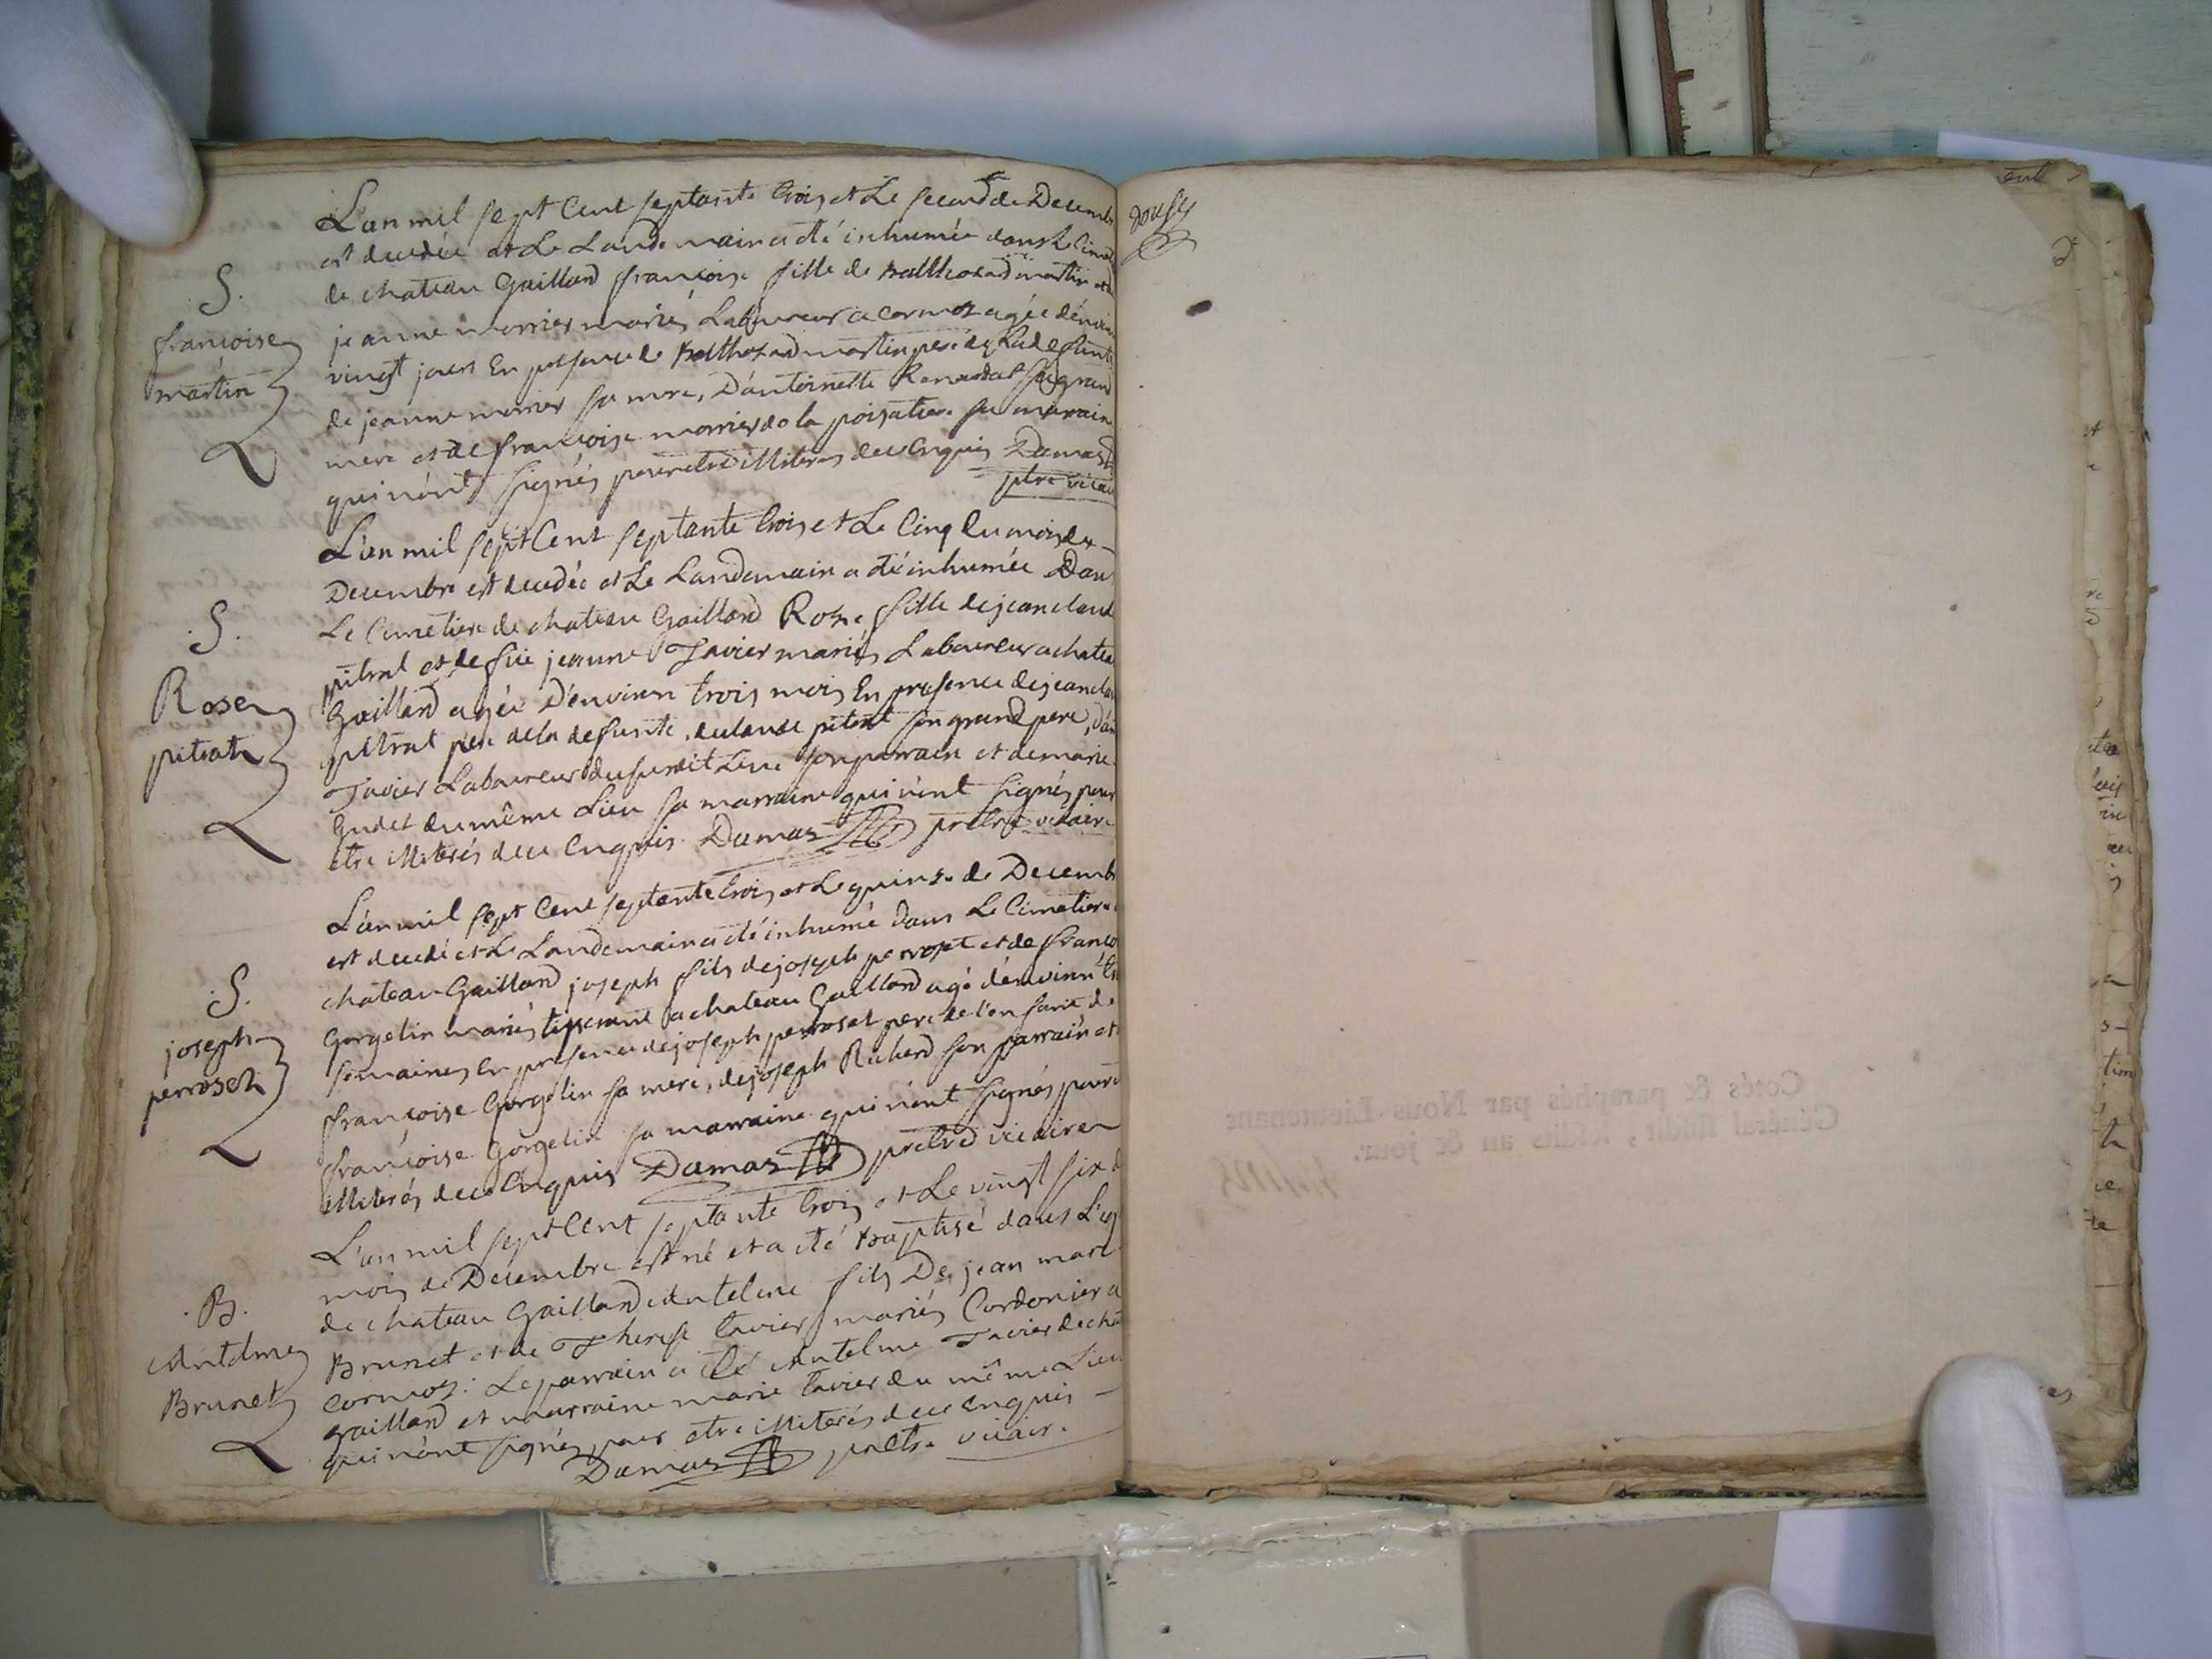 L'an mil sept Cent septante trois et Le second de Decemb
est decedée et Le Landemain a été inhumée dans Le Cimet
de chateau Gaillard françoise fille de Balthazard martin et de
S.
françoise
martin
jeanne morrier mariés Laboureur a cormoz agée d'environ
vingt jours En presence de Balthazard martin pere de La defunte
de jeanne morrier sa mere, D'antoinette Renardat sa grand
mere et de françoise morrier de la poisatiere sa marraine
qui n'ont signés pour etre illiterés de ce Enquis Damas
ptre vicaire
L'an mil sept Cent septante trois et Le Cinq du mois de
Decembre est decedée et Le Landemain a été inhumée Dans
Le Cimetiere de chateau Gaillard Rose fille de jean claude
S.
Rose
pitrat
pitrat et de fue jeanne Tavier mariés Laboureur a chateau
Gaillard agée D'environ trois mois En presence de jean claude
pitrat pere de la defunte, de claude pitrat son grand pere, d'an
Tavier Laboureur du susdit Lieu son parrain et de marie
Gudet du même Lieu sa marraine qui n'ont signés pour
etre illiterés de ce Enquis. Damas prêtre vicaire
L'an mil sept Cent septante trois et Le quinze de Decemb
est decedé et Le Landemain a été inhumé dans Le Cimetiere
chateau Gaillard joseph fils de joseph perroset et de franço
S.
joseph
perroset
Gorgelin mariés tisserant a chateau Gaillard agé d'environ
semaines En presence de joseph perroset pere de l'enfant de
françoise Gorgelin sa mere, de joseph Richard son parrain et
françoise Gorgelin sa marraine qui n'ont signés pour
illiterés de ce Enquis Damas prêtre vicaire
L'an mil sept Cent septante trois et Le vingt six d
mois de Decembre est né et a été baptisé dans L'eg
de chateau Gaillard Antelme fils De jean marc
B.
Antelme
Brunet
Brunet et de Therese tavier mariés Cordonier a
Cormoz: Le parrain a été Antelme Tavier de cha
gaillard et marraine marie tavier du même Lieu
qui n'ont signés pour etre illiterés de ce Enquis
Damas prêtre vicaire
Cotés & paraphés par Nous Lieutenant
Général susdit, lesdits an & jour.